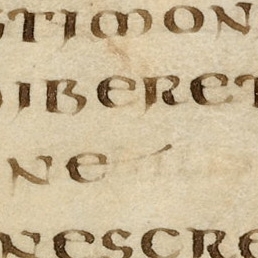 STIMON
DIBERET
NE
NESCRE